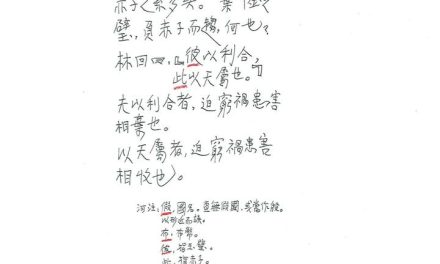 赤子之累多矣。棄
璧,負赤子而趨,何也?
林回曰,『彼以利合,
此以天屬也。』
夫以利合者,迫窮禍患害
相棄也。
以天屬者,迫窮禍患害
相收也。
注:假,國名。
以形近而誤。
布,布幣。
彼,指
此,指赤子。